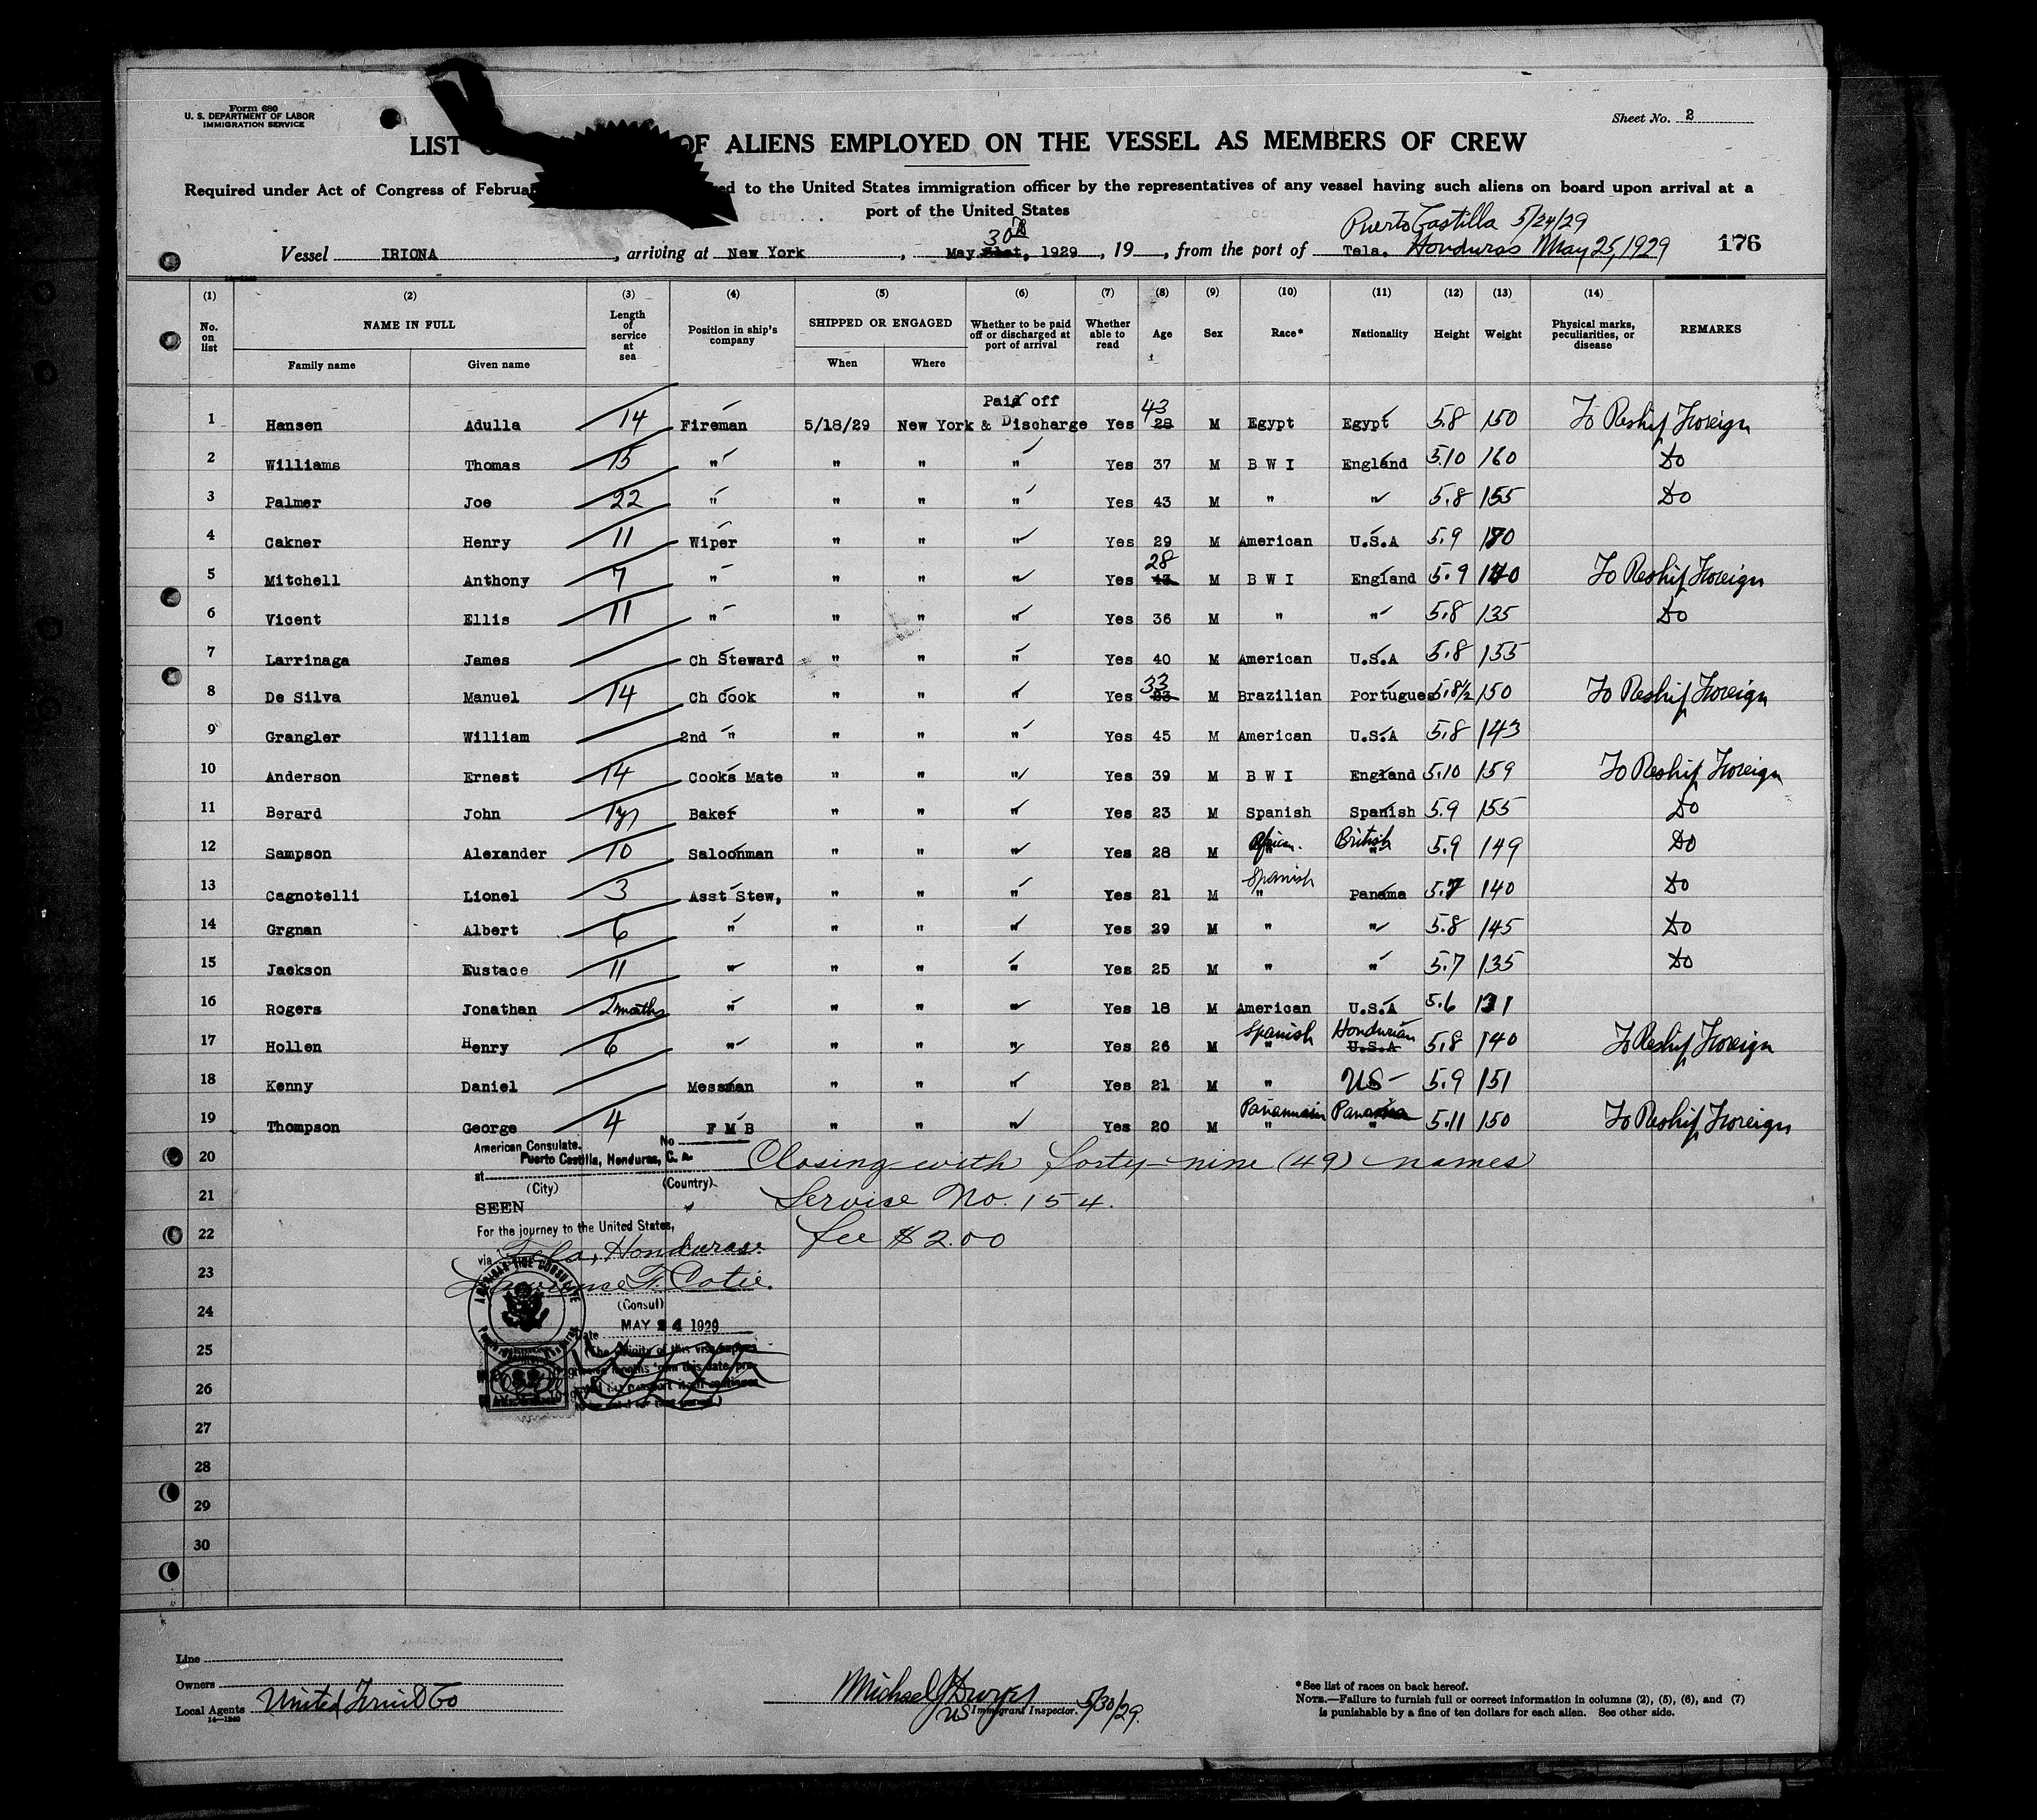 Form 680
U. S. DEPARTMENT OF LABOR
IMMIGRATION SERVICE
Sheet No. 2
LIST OF ALIENS EMPLOYED ON THE VESSEL AS MEMBERS OF CREW
Required under Act of Congress of to the United States immigration officer by the representatives of any vessel having such aliens on board upon arrival at a
port of the United States
Puerto Castilla 5/24/29
30th
Vessel IRIONA, arriving at New York, May 1929, 19 , from the port of Tela. Honduras May 25, 1929 176
(1) (2) (3) (4) (5) (6) (7) (8) (9) (10) (11) (12) (13) (14)
No. on list NAME IN FULL Length of service at sea Position in ship's company SHIPPED OR ENGAGED Whether to be paid off or discharged at port of arrival Whether able to read Age Sex Race* Nationality Height Weight Physical marks, peculiarities, or disease REMARKS
Family name Given name When Where
Paid off
1 Hansen Adulla 14 Fireman 5/18/29 New York & Discharge Yes 28 43 M Egypt Egypt 5.8 150 To Reship Foreign
2 Williams Thomas 15 " " " " Yes 37 M B W I England 5.10 160 Do
3 Palmer Joe 22 " " " " Yes 43 M " " 5.8 155 Do
4 Cakner Henry 11 Wiper " " " Yes 29 M American U.S.A 5.9 170
5 Mitchell Anthony 7 " " " " Yes 43 28 M B W I England 5.9 140 To Reship Foreign
6 Vicent Ellis 11 " " " " Yes 36 M " " 5.8 135 Do
7 Larrinaga James Ch Steward " " " Yes 40 M American U.S.A 5.8 155
8 De Silva Manuel 14 Ch Cook " " " Yes 33 M Brazilian Portugues 5.8½ 150 To Reship Foreign
9 Grangler William 2nd " " " " Yes 45 M American U.S.A 5.8 143
10 Anderson Ernest 14 Cooks Mate " " " Yes 39 M B W I England 5.10 159 To Reship Foreign
11 Berard John 1yr Baker " " " Yes 23 M Spanish Spanish 5.9 155 Do
12 Sampson Alexander 10 Saloonman " " " Yes 28 M African. British 5.9 149 Do
13 Cagnotelli Lionel 3 Asst Stew, " " " Yes 21 M Spanish Panama 5.7 140 Do
14 Grgnan Albert 6 " " " " Yes 29 M " " 5.8 145 Do
15 Jackson Eustace 11 " " " " Yes 25 M " " 5.7 135 Do
16 Rogers Jonathan 2 months " " " " Yes 18 M American U.S.A 5.6 131
17 Hollen Henry 6 " " " " Yes 26 M Spanish Honduran U.S.A 5.8 140 To Reship Foreign
18 Kenny Daniel Messman " " " Yes 21 M " US 5.9 151
19 Thompson George 4 F M B " " " Yes 20 M Panamain Panama 5.11 150 To Reship Foreign
20
21
22
23
24
25
26
27
28
29
30
American Consulate. No
Puerto Castilla, Honduras, C. A.
at
(City) (Country)
SEEN
For the journey to the United States,
via Tela, Honduras.
Lawrence F. Cotie.
(Consul)
Date MAY 24 1929
Closing with forty-nine (49) names
Service No. 154.
fee $2.00
Line
Owners
Local Agents United Fruit Co
14—1240
Michael J
US Immigrant Inspector. 5/30/29.
*See list of races on back hereof.
NOTE.—Failure to furnish full or correct information in columns (2), (5), (6), and (7)
is punishable by a fine of ten dollars for each alien. See other side.